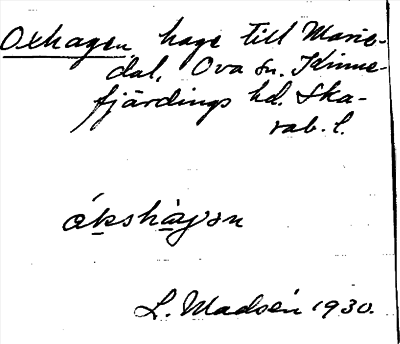 Oxhagen, hage till Marie-
dal, Ova sn. Kinne-
fjärdings hd. Ska-
rab. l.
ókshàgən
L. Madsén 1930.